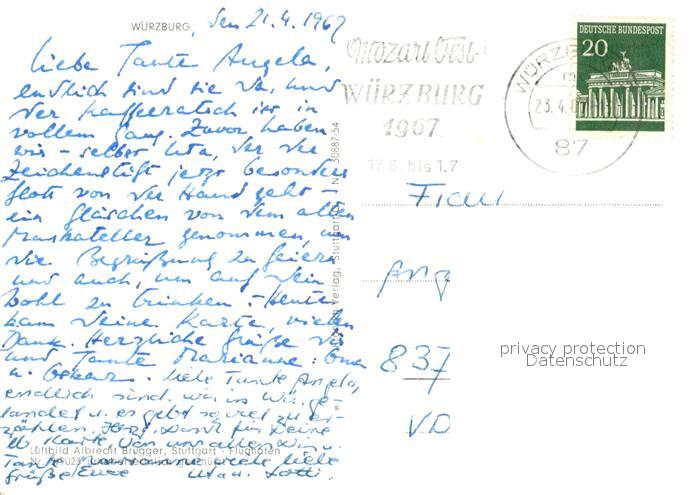 WÜRZBURG, den 21.4.1967
Liebe Tante Angela,
endlich sind sie da, und
der Kaffeeratsch ist in
vollem Gang. Zuvor haben
wir - selbst Uta, der der
Zeichenstift jetzt besonders
flott von der Hand geht -
ein Gläschen von dem alten
Muskateller genommen, um
die Begrüßung zu feiern
und auch, um auf Dein
Wohl zu trinken. - Heute
kam Deine Karte, vielen
Dank. Herzliche Grüße Dir
und Tante Marianne: Oma
u. Oskar. Liebe Tante Angela,
endlich sind wir in Wü. ge-
landet u. es gibt so viel zu er-
zählen. Herzl. Dank für Deine
lb. Karte. Von uns allen Dir u.
Tante viele liebe
Grüße Eure Uta u. Lotti.
Luftbild Albrecht Brugger, Stuttgart - Flughafen
Verlag, Stuttgart
30887/54
Mozart Fest
WÜRZBURG
1967
17.6. bis 1.7
DEUTSCHE BUNDESPOST
20
WÜRZB
23.4.
87
Frau
Ang
837
VD
privacy protection
Datenschutz